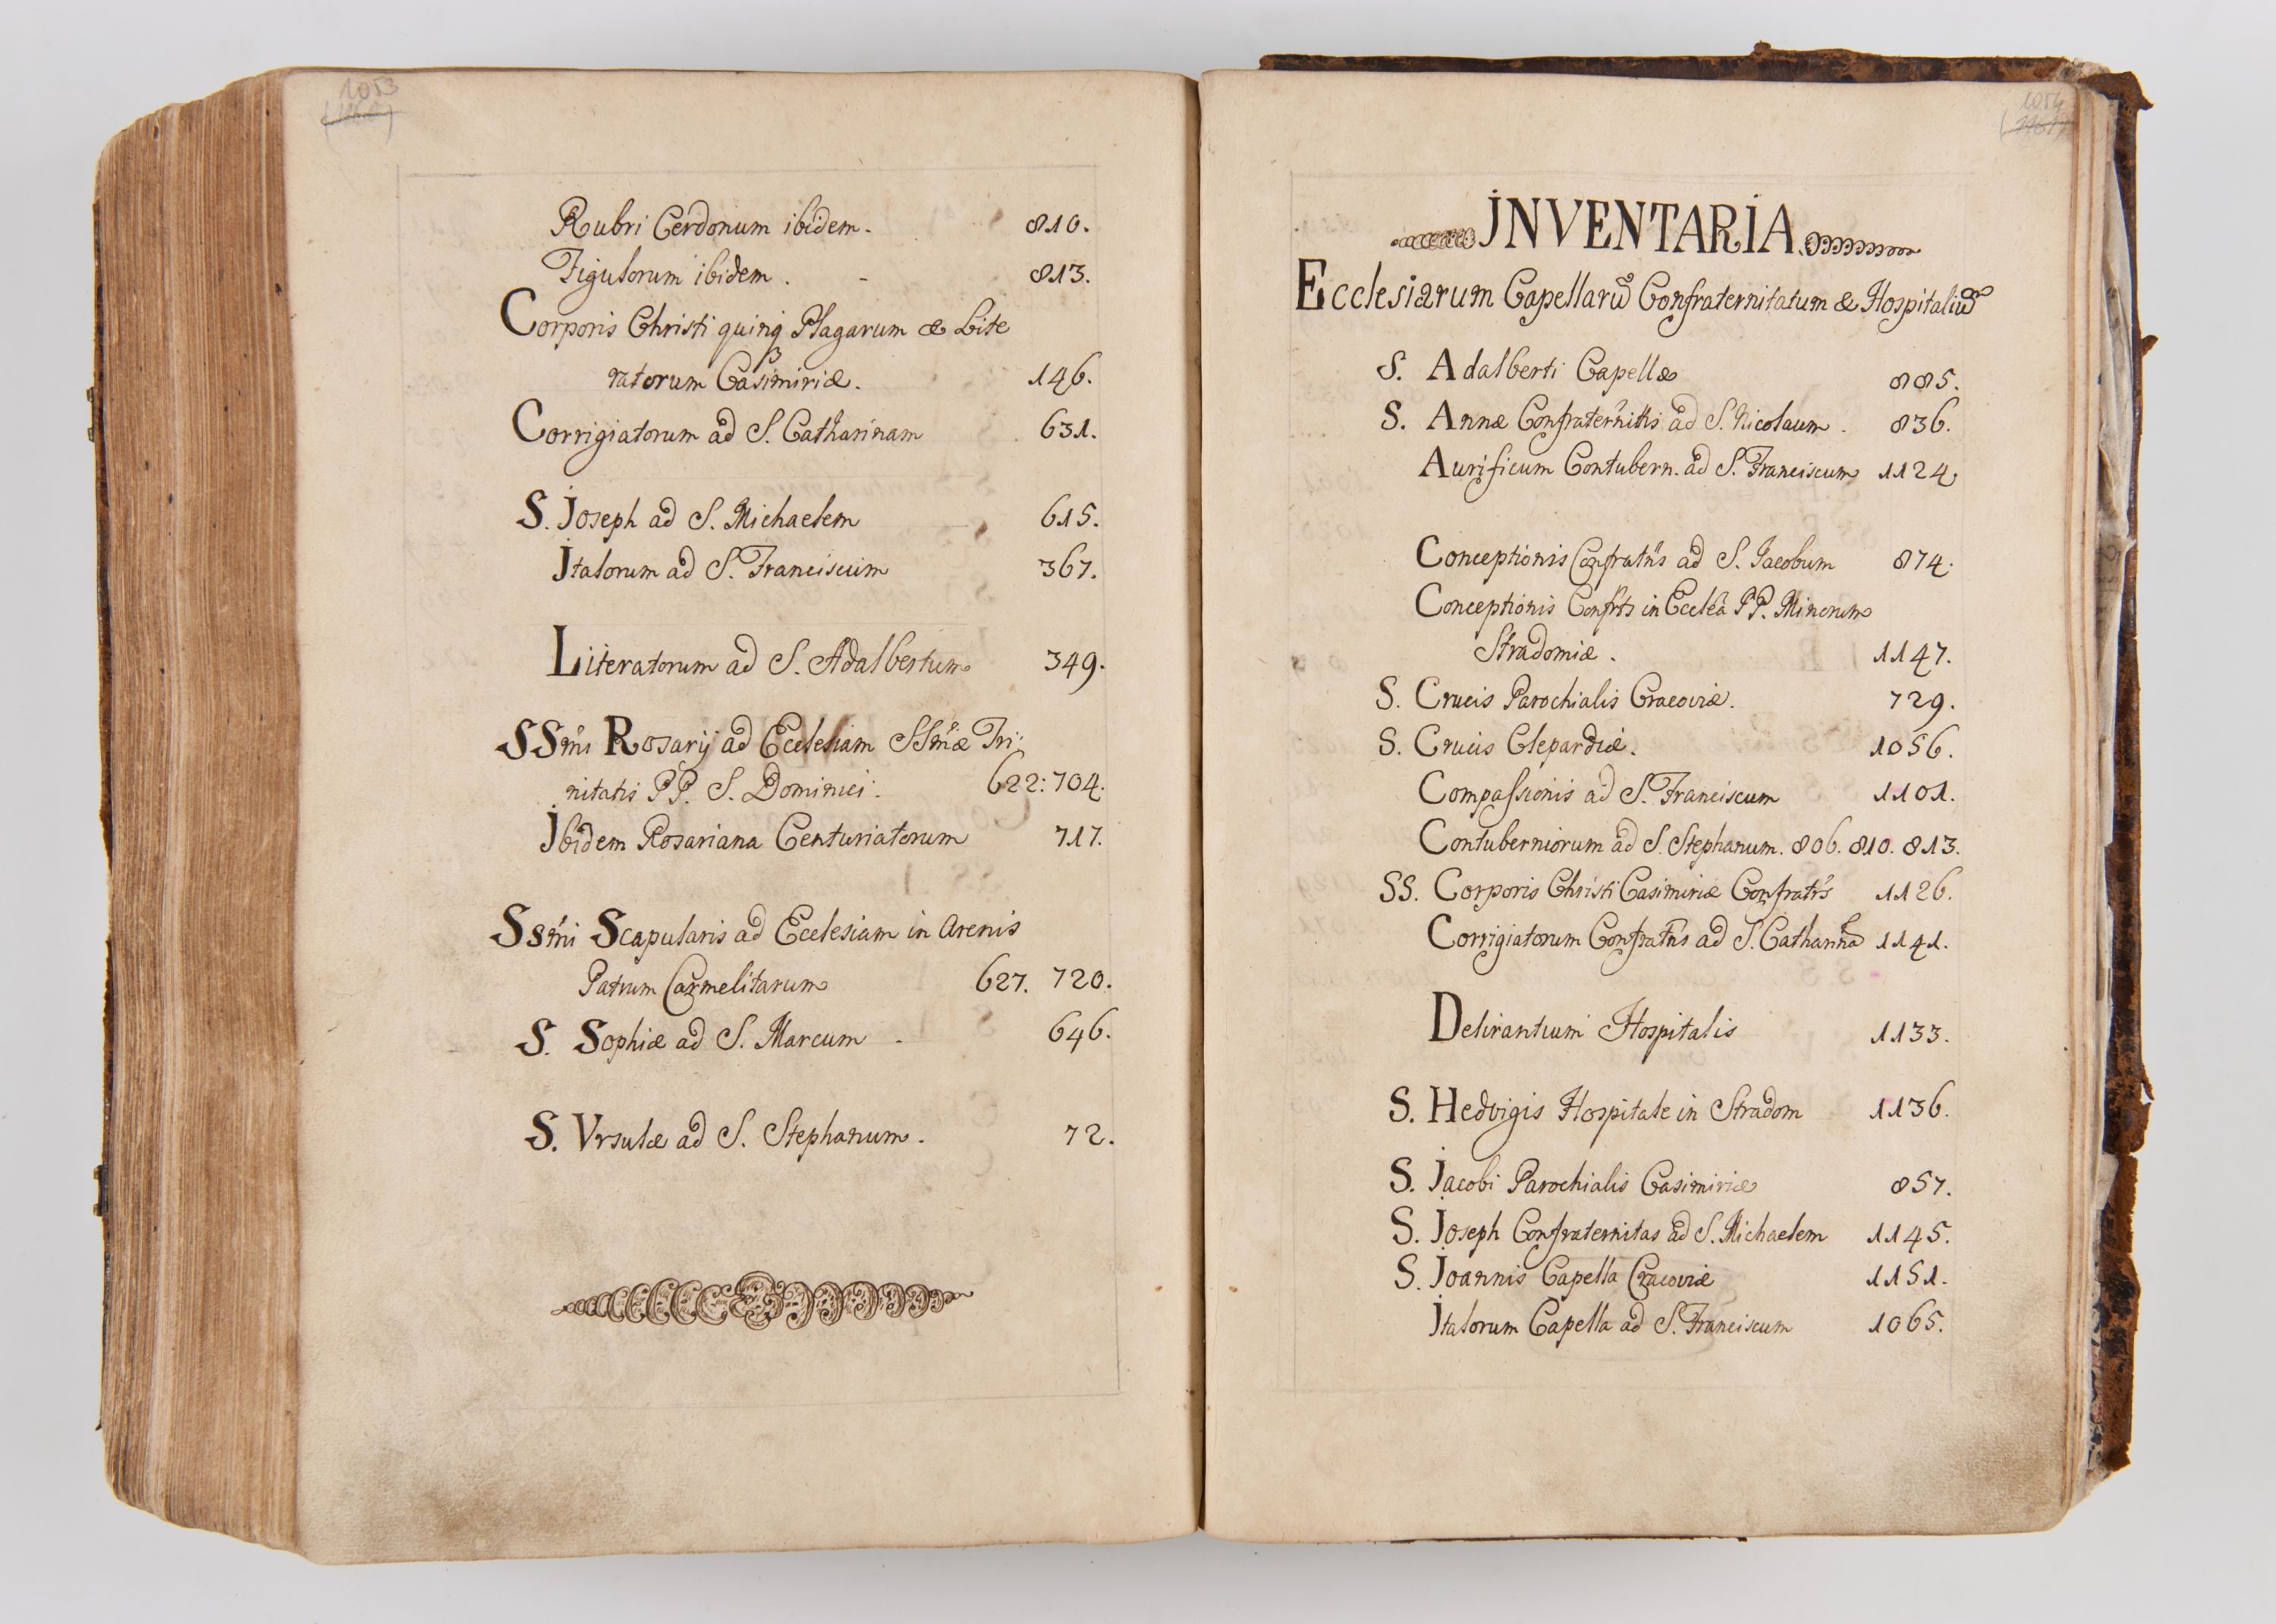 1053
Rubri Cerdonum ibidem. 810.
Figulorum ibidem. - 813.
Corporis Christi quinq Plagarum & Lite
ratorum Casimiriæ. 146.
Corrigiatorum ad S. Catharinam 631.
S. Joseph ad S. Michaelem 615.
Jtalorum ad S. Franciscum 367.
Literatorum ad S. Adalbertum 349.
SSmi Rosarij ad Ecclesiam SSmæ Tri:
nitatis PP. S. Dominici. 622: 704.
Jbidem Rosariana Centuriatorum 717.
Ssmi Scapularis ad Ecclesiam in Arenis
Patrum Carmelitarum 627. 720.
S. Sophiæ ad S. Marcum - 646.
S. Vrsulæ ad S. Stephanum. 72.
1054
JNVENTARIA
Ecclesiarum Capellarū Confraternitatum & Hospitaliū
S. Adalberti Capellæ 885.
S. Annæ Confraternittis ad S. Nicolaum. 836.
Aurificum Contubern. ad S. Franciscum 1124.
Conceptionis Confratnis ad S. Jacobum 874.
Conceptionis Confrtis in Ecclea PP. Minorum
Stradomiæ. 1147.
S. Crucis Parochialis Cracoviæ. 729.
S. Crucis Clepardiæ. 1056.
Compaſsionis ad S. Franciscum 1101.
Contuberniorum ad S. Stephanum. 806. 810. 813.
SS. Corporis Christi Casimiriæ Confratris 1126.
Corrigiatorum Confratnis ad S. Catharina 1141.
Delirantium Hospitalis 1133.
S. Hedvigis Hospitale in Stradom 1136.
S. Jacobi Parochialis Casimiriæ 857.
S. Joseph Confraternitas ad S. Michaelem 1145.
S. Joannis Capella Cracoviæ 1151.
Jtalorum Capella ad S. Franciscum 1065.